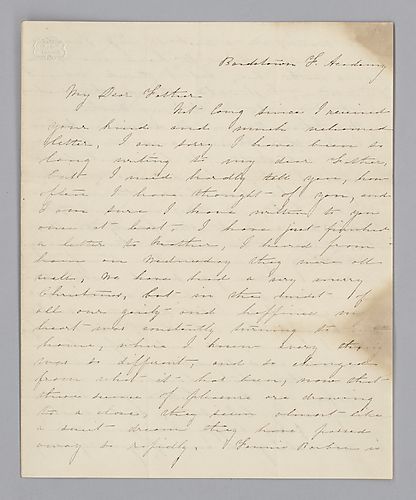 Bardstown F. Academy
My Dear Father
Not long since I received
your kind and much welcomed
letter, I am sorry I have been so
long writing to my dear Father,
but I need hardly tell you, how
often I have thought of you, and
I am sure I have written to you
once at least. I have just finished
a letter to Mother, I heard from
home on Wednesday they were all
well, We have had a very merry
Christmas, but in the midst of
all our gaiety and happiness my
heart was constantly turning to
home, where I knew every thing
was so different, and so changed
from what it had been, now that
these scenes of pleasure are drawing
to a close, they seem almost like
a sweet dream they have passed
away so rapidly. Fannie Barbee is